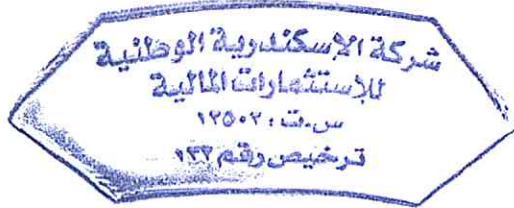 شركة الإسكندرية الوطنية
للإستثمارات المالية
س.ت: ١٢٥٠٢
ترخيص رقم ١٣٣